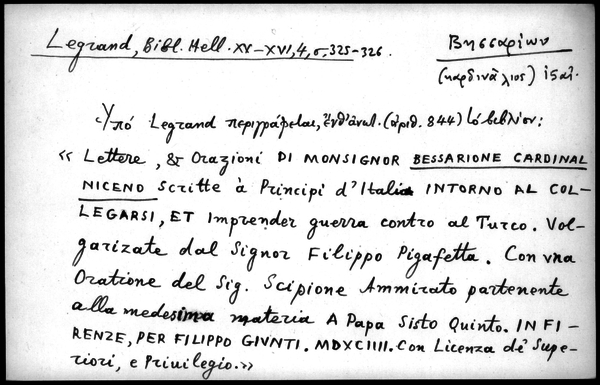 Legrand, Bibl. Hell. XV–XVI, 4, σ. 325–326.
Βησσαρίων
(καρδινάλιος) ἰδαλ.
Ὑπό Legrand περιγράφεται, ἔνθ' ἀνωτ. (ἀριθ. 844) τό βιβλίον:
« Lettere, & Orazioni DI MONSIGNOR BESSARIONE CARDINAL
NICENO Scritte à Principi d'Italia INTORNO AL COL-
LEGARSI, ET Imprender guerra contro al Turco. Vol-
garizate dal Signor Filippo Pigafetta. Con vna
Oratione del Sig. Scipione Ammirato partenente
alla medesima materia A Papa Sisto Quinto. IN FI-
RENZE, PER FILIPPO GIVNTI. MDXCIIII. Con Licenza de' Supe-
riori, e Priuilegio.»